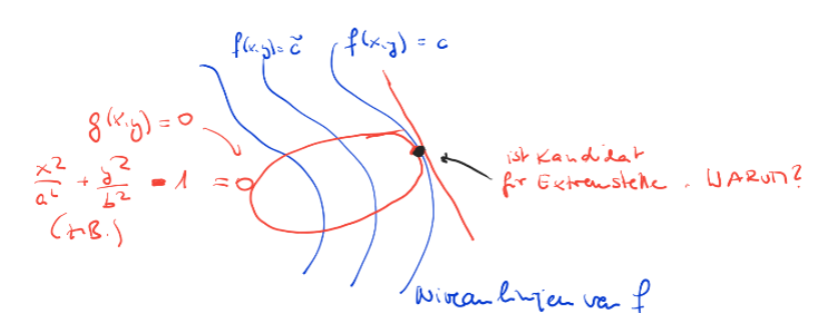 f(x,y)=c̃
f(x,y) = c
g(x,y) = 0
x²/a² + y²/b² - 1 = 0
(z.B.)
ist Kandidat
für Extremstelle. WARUM?
Niveaulinien von f